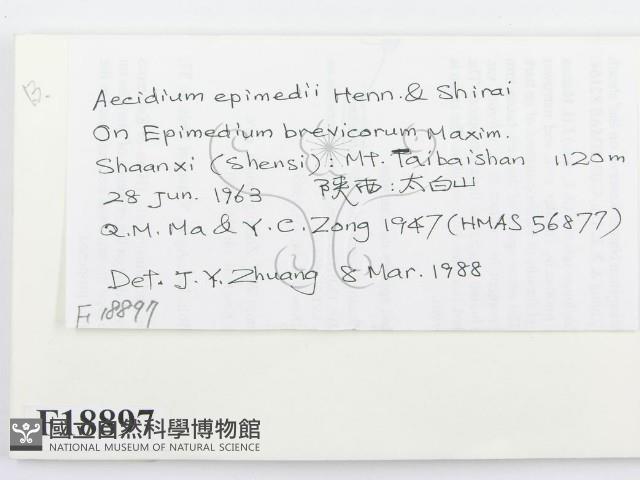 B.
Aecidium epimedii Henn. & Shirai
On Epimedium brevicorum Maxim.
Shaanxi (Shensi): Mt. Taibaishan 1120m
28 Jun. 1963 陕西:太白山
Q.M. Ma & Y.C. Zong 1947 (HMAS 56877)
Det. J.Y. Zhuang 8 Mar. 1988
F 18897
F18897
國立自然科學博物館
NATIONAL MUSEUM OF NATURAL SCIENCE